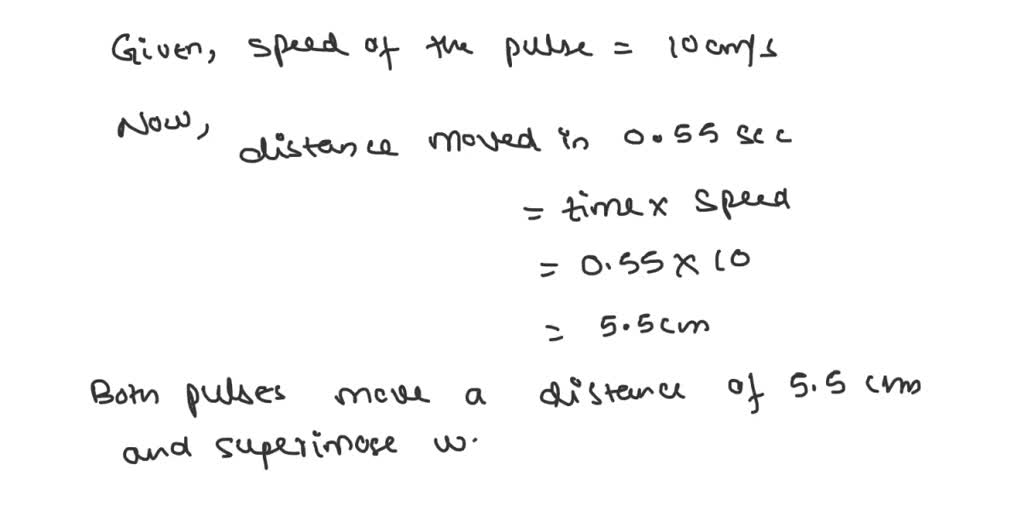 Given, speed of the pulse = 10 cm/s
Now,
distance moved in 0.55 sec
= time x speed
= 0.55 x 10
= 5.5 cm
Both pulses move a distance of 5.5 cm
and superimose w.